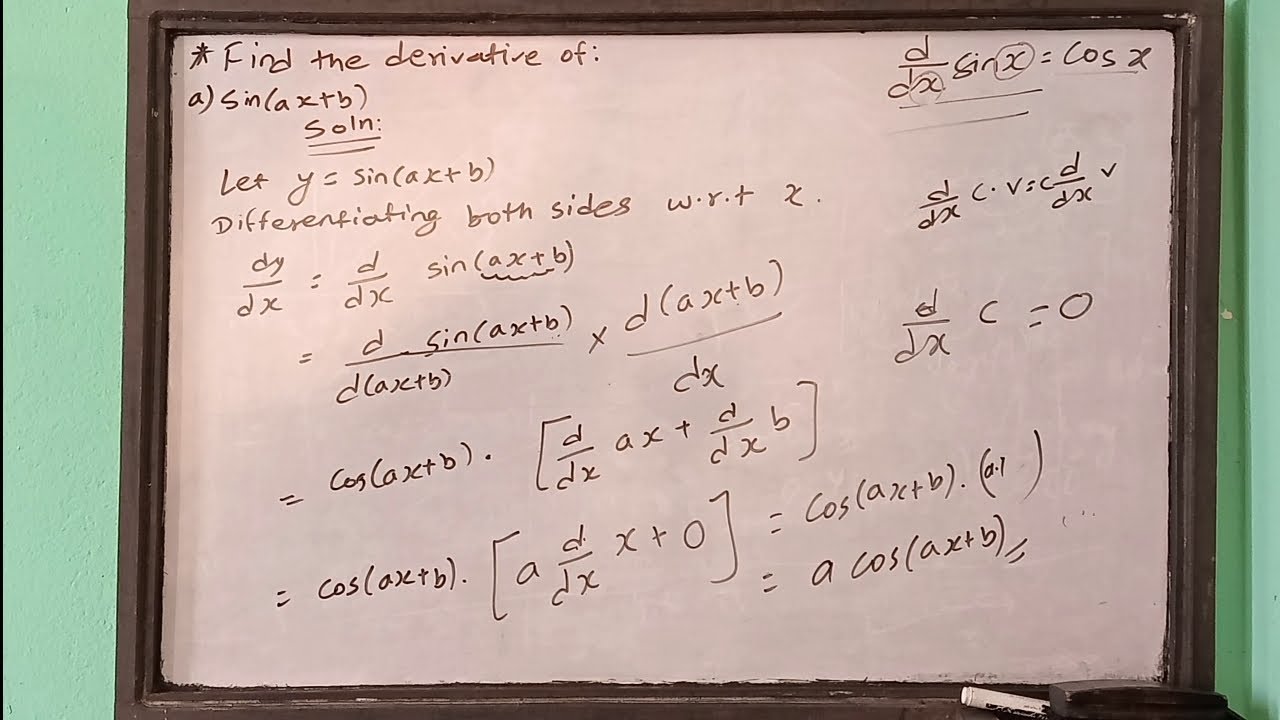 * Find the derivative of:
a) sin(ax+b)
Soln:
Let y = sin(ax+b)
Differentiating both sides w.r.t x.
dy/dx = d/dx sin(ax+b)
= d sin(ax+b)/d(ax+b) × d(ax+b)/dx
= cos(ax+b) · [d/dx ax + d/dx b]
= cos(ax+b) · [a d/dx x + 0] = cos(ax+b) · (a·1)
= a cos(ax+b)
d/dx sin x = cos x
d/dx c · v = c d/dx v
d/dx c = 0